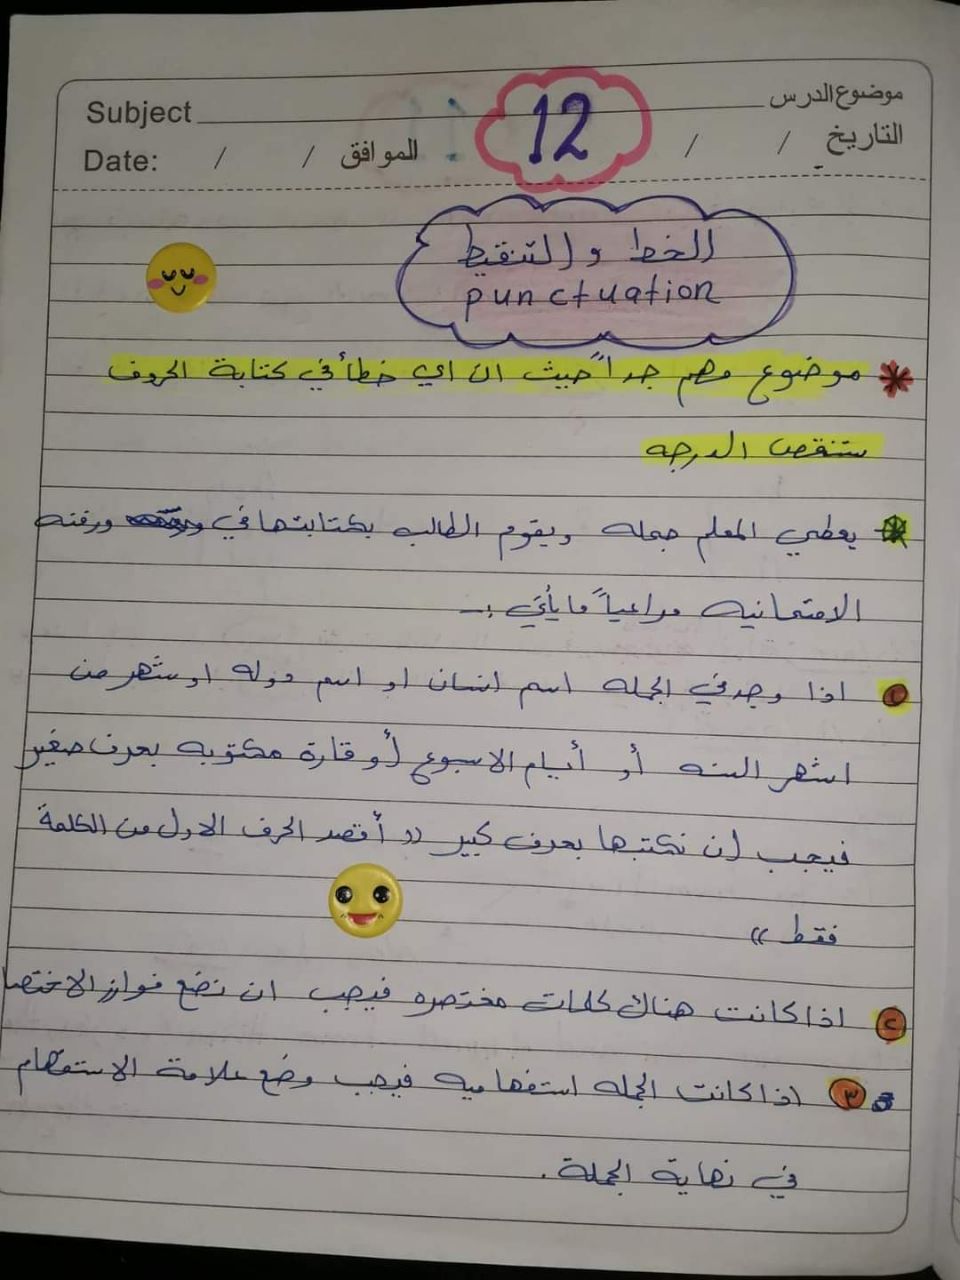 موضوع الدرس
Subject
12
التاريخ / /
الموافق / /
Date:
الخط والتنقيط
punctuation
* موضوع مهم جداً حيث ان اي خطأ في كتابة الحروف
ستنقص الدرجه
* يعطي المعلم جمله ويقوم الطالب بكتابتها في ورقته
الامتحانيه مراعياً ما يأتي :-
١ اذا وجد في الجمله اسم انسان او اسم دوله او شهر من
اشهر السنه أو أيام الاسبوع أو قارة مكتوبه بحرف صغير
فيجب ان نكتبها بحرف كبير (( أقصد الحرف الاول من الكلمة
فقط ))
٢ اذا كانت هناك كلمات مختصره فيجب ان نضع فوارز الاختصا
٣ اذا كانت الجمله استفهاميه فيجب وضع علامة الاستفهام
في نهاية الجملة .